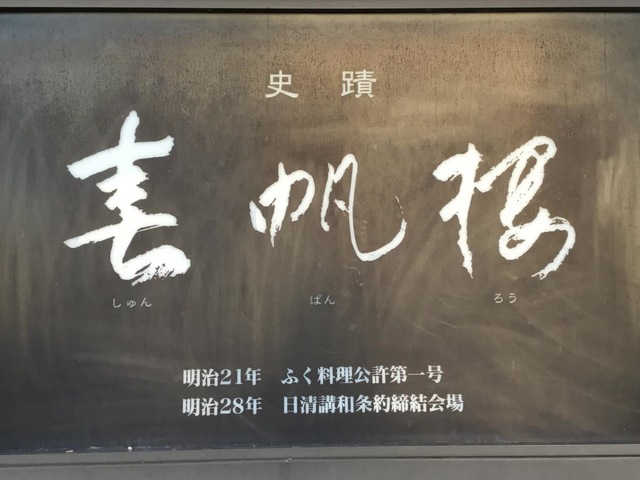 史蹟
春帆楼
しゅん ぱん ろう
明治21年 ふく料理公許第一号
明治28年 日清講和条約締結会場